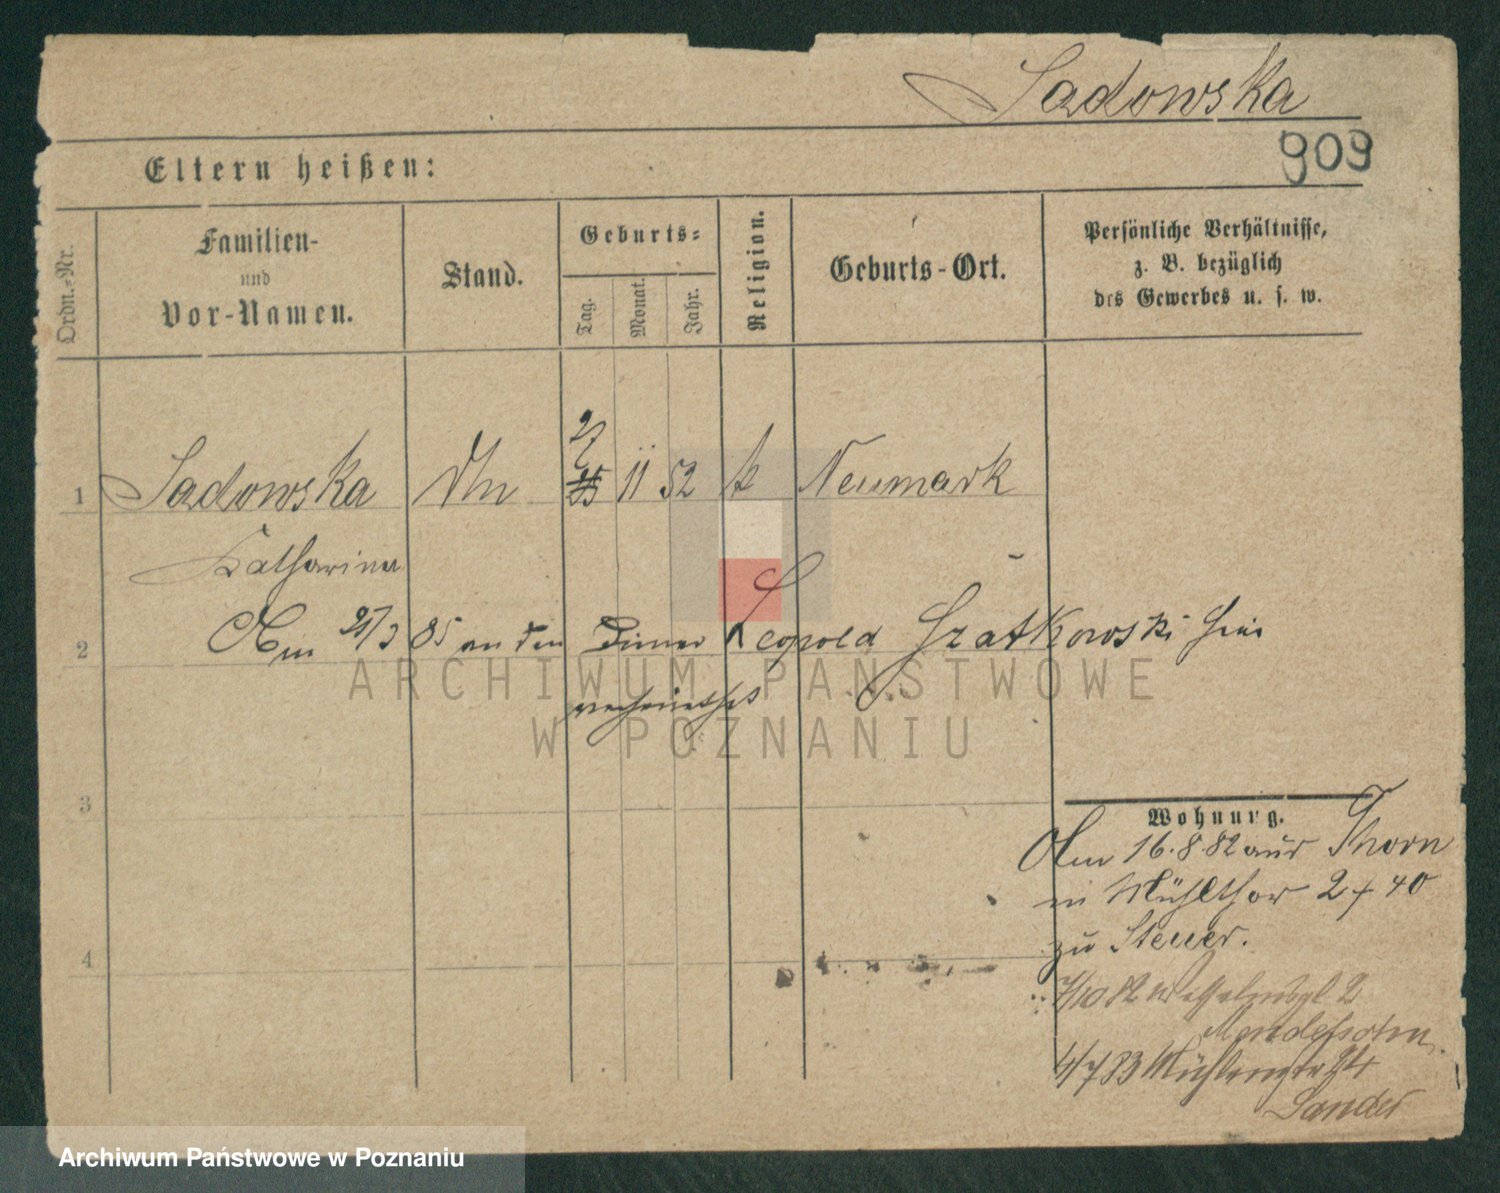 Sadowska
909
Eltern heißen:
Ordn.-Nr.
Familien-
und
Vor-Namen.
Stand.
Geburts-
Tag.
Monat.
Jahr.
Religion.
Geburts-Ort.
Persönliche Verhältnisse,
z. B. bezüglich
des Gewerbes u. s. w.
27
1 Sadowska 11 52 k Neumark
Katharina
2 85 an den Diener Leopold Szatkowski hier
verheirathet
ARCHIWUM PAŃSTWOWE
W POZNANIU
3
Wohnung.
Am 16.8.82 aus Thorn
in Mühlthor 2 f 40
zu Steuer.
4
7/10 82 2
Mendelssohn
4/7 83 Mühlenstr 24
Sander
Archiwum Państwowe w Poznaniu